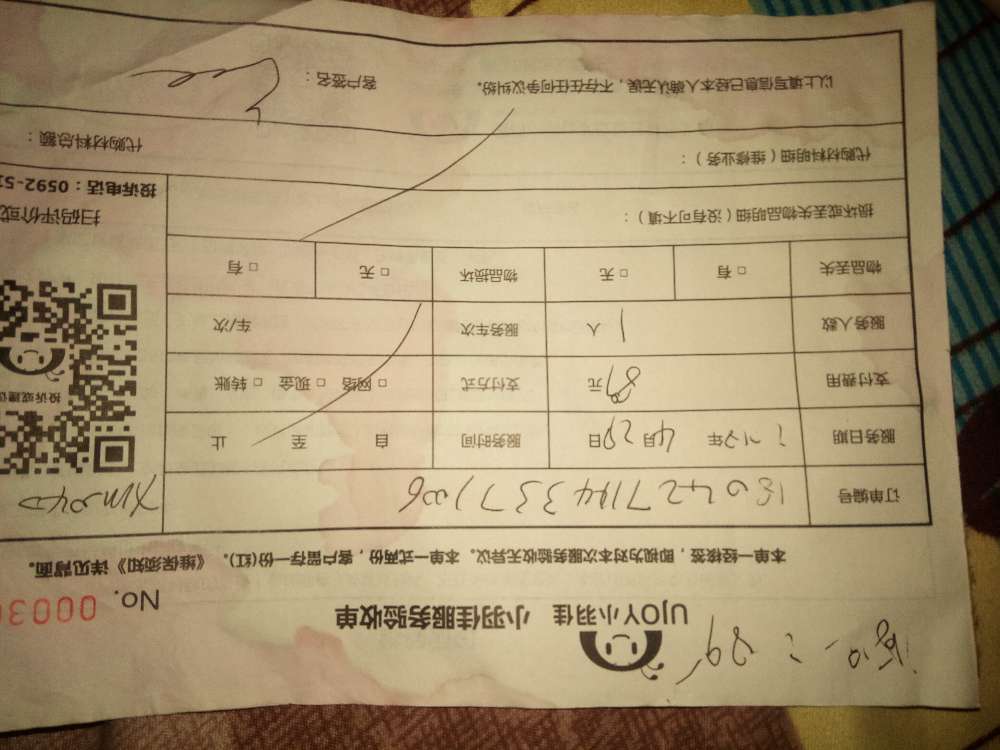 UJOY小羽佳 小羽佳服务验收单
No. 0003
本单一经核签，即视为对本次服务验收无异议。本单一式两份，客户留存一份(红)。《维保须知》详见背面。
订单编号
服务日期 年 4月29日 服务时间 自 至 止
支付费用 元 支付方式 □ 网络 □ 现金 □ 转账
服务人数 1 人 服务车次 车/次
物品丢失 □ 有 □ 无 物品损坏 □ 无 □ 有
损坏或丢失物品明细（没有可不填）：
代购材料明细（维修业务）：
代购材料总额：
以上填写信息已经本人确认无误，不存在任何争议纠纷。 客户签名：
投诉或建议
扫码评价或
投诉电话：0592-51